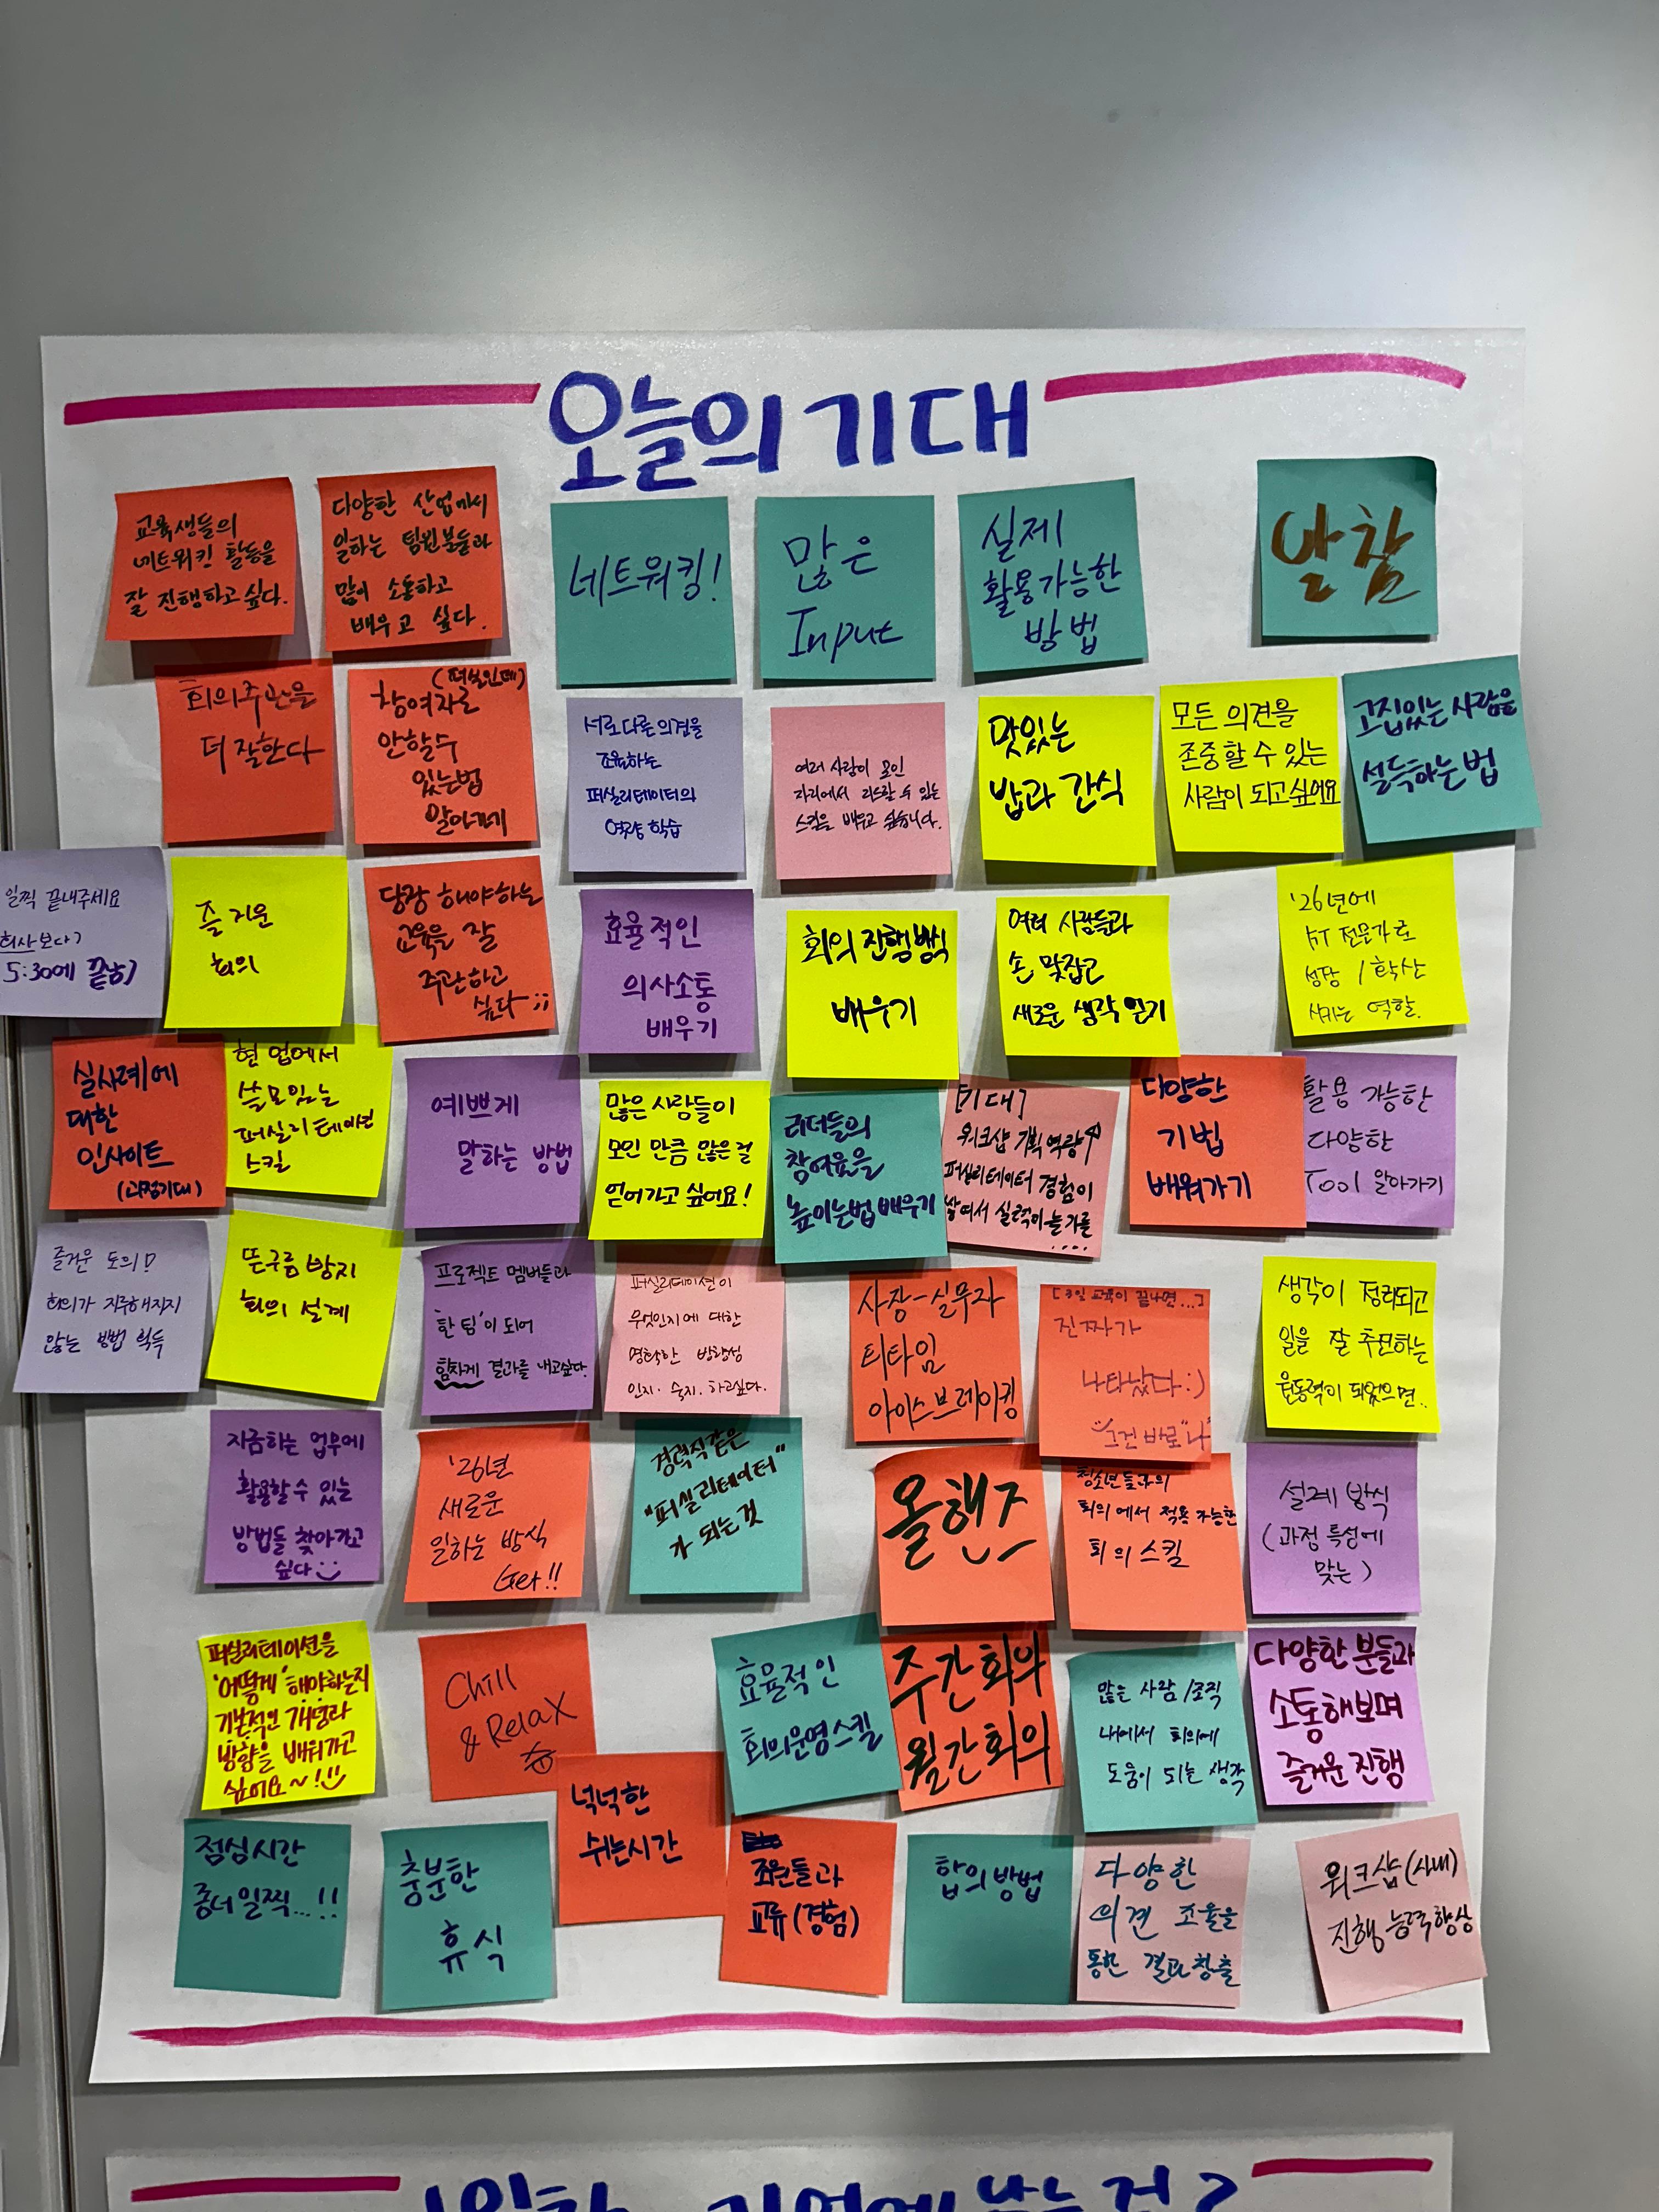 오늘의 기대
교육생들의
네트워킹 활동을
잘 진행하고 싶다.
다양한 산업에서
일하는 팀원분들과
많이 소통하고
배우고 싶다.
네트워킹!
많은
Input
실제
활용가능한
방법
알참
회의주관을
더 잘한다
(퍼실인데)
참여자로
안할수
있는법
알아가기
서로 다른 의견을
조율하는
퍼실리테이터의
역량 학습
여러 사람이 모인
자리에서 리드할 수 있는
스킬을 배우고 싶습니다.
맛있는
밥과 간식
모든 의견을
존중할 수 있는
사람이 되고싶어요
고집있는 사람을
설득하는 법
일찍 끝내주세요
회사보다?
5:30에 끝남?
즐거운
회의
당장 해야하는
교육을 잘
주관하고
싶다
효율적인
의사소통
배우기
회의 진행방식
배우기
여러 사람들과
손 맞잡고
새로운 생각 얻기
'26년에
FT 전문가로
성장 / 확산
시키는 역할.
실사례에
대한
인사이트
(과정기대)
현업에서
쓸모있는
퍼실리테이션
스킬
예쁘게
말하는 방법
많은 사람들이
모인 만큼 많은 걸
얻어가고 싶어요!
리더들의
참여율을
높이는법 배우기
[기대]
워크샵 기획 역량↑
퍼실리테이터 경험이
쌓여서 실력이 늘기를
....
다양한
기법
배워가기
활용 가능한
다양한
Tool 알아가기
즐거운 도의!
회의가 지루해지지
않는 방법 획득
뜬구름 방지
회의 설계
프로젝트 멤버들과
'한 팀'이 되어
힘차게 결과를 내고싶다.
퍼실리테이션이
무엇인지에 대한
명확한 방향성
인지. 숙지. 하고싶다.
사장-실무자
티타임
아이스브레이킹
[3일 교육이 끝나면...]
진짜가
나타났다 :)
"그건 바로 "나"
생각이 정리되고
일을 잘 추진하는
원동력이 되었으면..
지금하는 업무에
활용할 수 있는
방법들 찾아가고
싶다
'26년
새로운
일하는 방식
Get!!
경력직같은
"퍼실리테이터"
가 되는 것
올핸즈
청소년들과의
회의에서 적용 가능한
회의 스킬
설계 방식
(과정 특성에
맞는)
퍼실리테이션을
'어떻게' 해야하는지
기본적인 개념과
방향을 배워가고
싶어요~!!
Chill
& Relax
효율적인
회의운영스킬
주간회의
월간회의
많은 사람/조직
내에서 회의에
도움이 되는 생각
다양한 분들과
소통해보며
즐거운 진행
점심시간
좀더 일찍...!!
충분한
휴식
넉넉한
쉬는시간
조원들과
교류(경험)
합의 방법
다양한
의견 조율을
통한 결과창출
워크샵(사내)
진행 능력향상